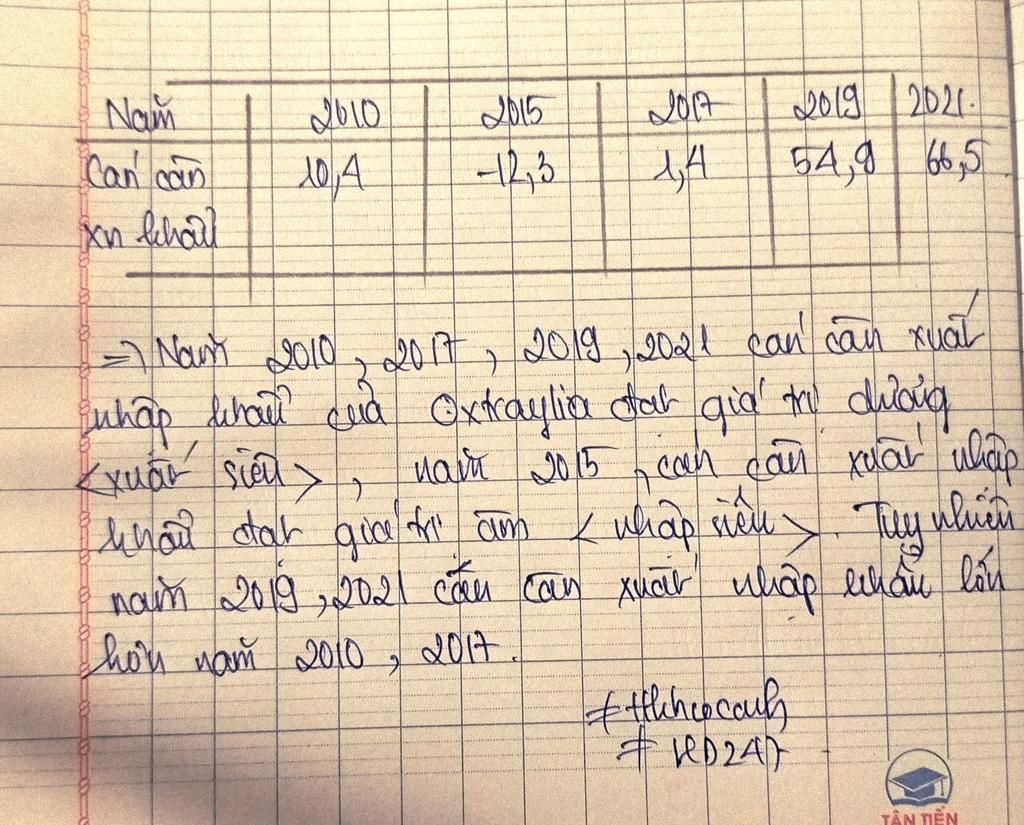 Năm 2010 2015 2017 2019 2021.
Cán cân 10,4 -12,3 1,4 54,9 66,5
xn khẩu
=> Năm 2010, 2017, 2019, 2021 cán cân xuất
nhập khẩu của Oxtraylia đạt giá trị dương
<xuất siêu>, năm 2015, cán cân xuất nhập
khẩu đạt giá trị âm <nhập siêu>. Tuy nhiên
năm 2019, 2021 cán cân xuất nhập khẩu lớn
hơn năm 2010, 2017.
# HD247
TÂN TIẾN